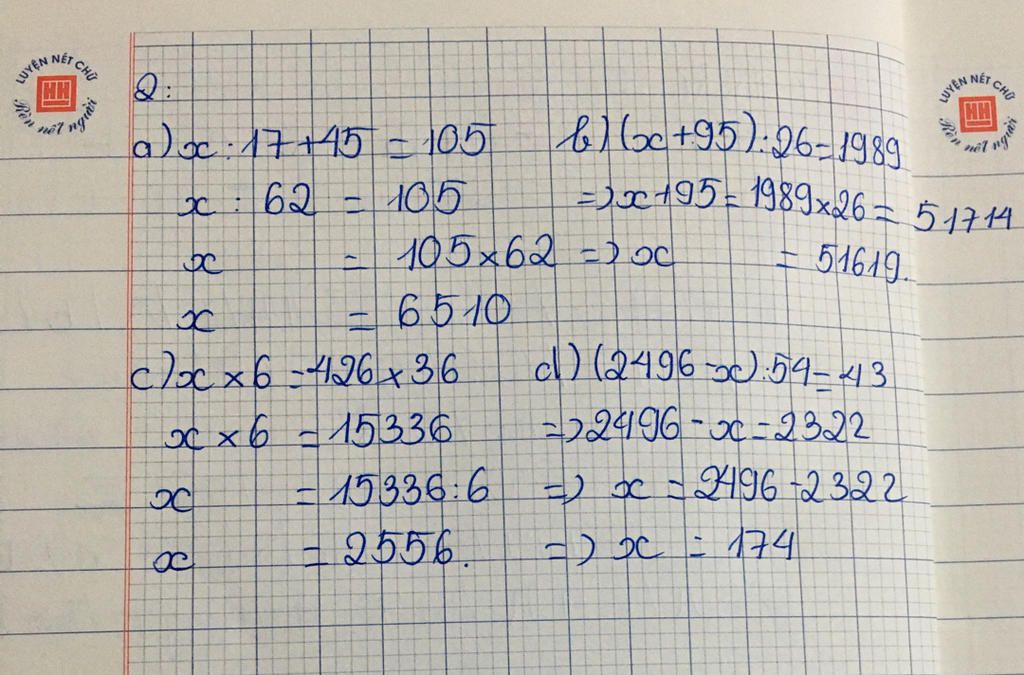 LUYỆN NÉT CHỮ
HH
Rèn nết người
LUYỆN NÉT CHỮ
HH
Rèn nết người
Q:
a) x : 17 + 45 = 105
x : 62 = 105
x = 105 × 62
x = 6510
b) (x + 95) : 26 = 1989
=> x + 95 = 1989 × 26 = 51714
=> x = 51619.
c) x × 6 = 426 × 36
x × 6 = 15336
x = 15336 : 6
x = 2556.
d) (2496 - x) : 54 = 43
=> 2496 - x = 2322
=> x = 2496 - 2322
=> x = 174